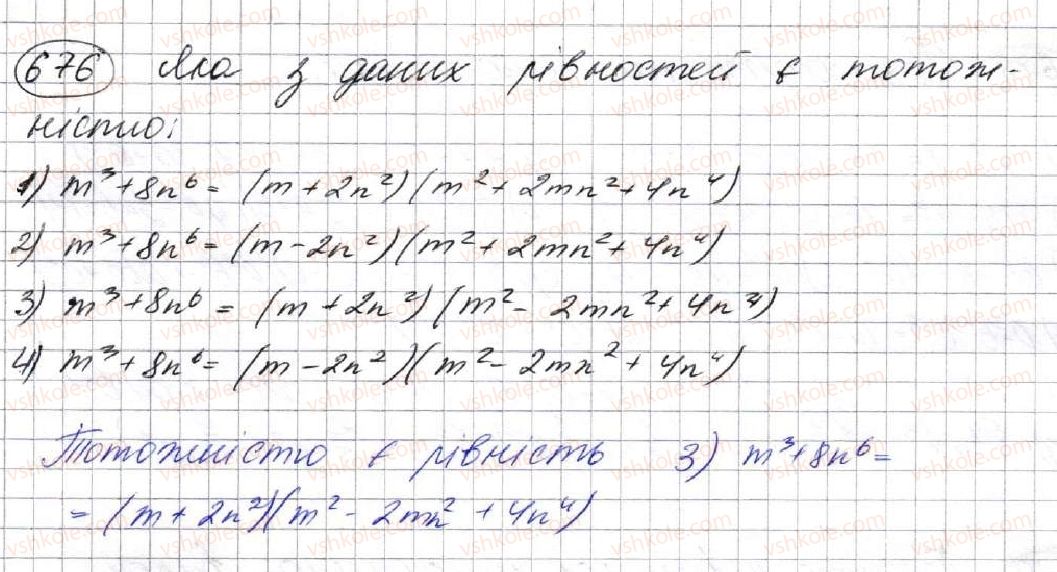 676 Яка з даних рівностей є тотож-
ністю:
1) m³+8n⁶ = (m+2n²)(m²+2mn²+4n⁴)
2) m³+8n⁶ = (m-2n²)(m²+2mn²+4n⁴)
3) m³+8n⁶ = (m+2n²)(m²-2mn²+4n⁴)
4) m³+8n⁶ = (m-2n²)(m²-2mn²+4n⁴)
Тотожністю є рівність 3) m³+8n⁶ =
= (m+2n²)(m²-2mn²+4n⁴)
vshkole.com